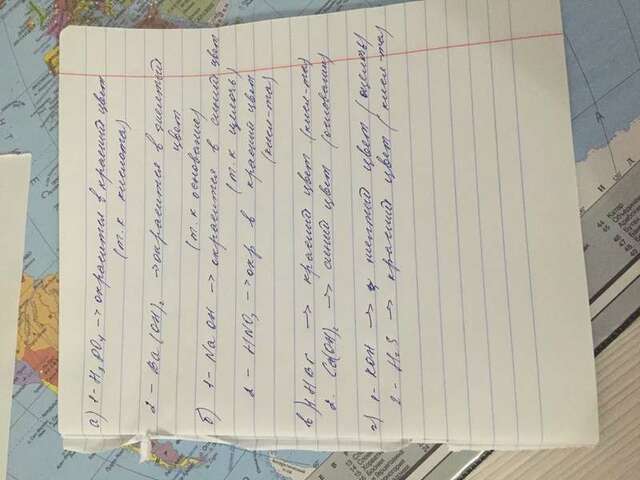 а) 1 - H3PO4 → окрасится в красный цвет
(т.к кислота)
2 - Ba(OH)2 → окрасится в желтый
цвет
(т.к основание)
б) 1 - NaOH → окрасится в синий цвет
(т.к щелочь)
2 - HNO3 → окр в красный цвет
(кисл-та)
в) 1 HBr → красный цвет (кисл-та)
2. Ca(OH)2 → синий цвет (основание)
г) 1 - KOH → желтый цвет (щелочь)
2 - H2S → красный цвет (кисл-та)
44 Катар